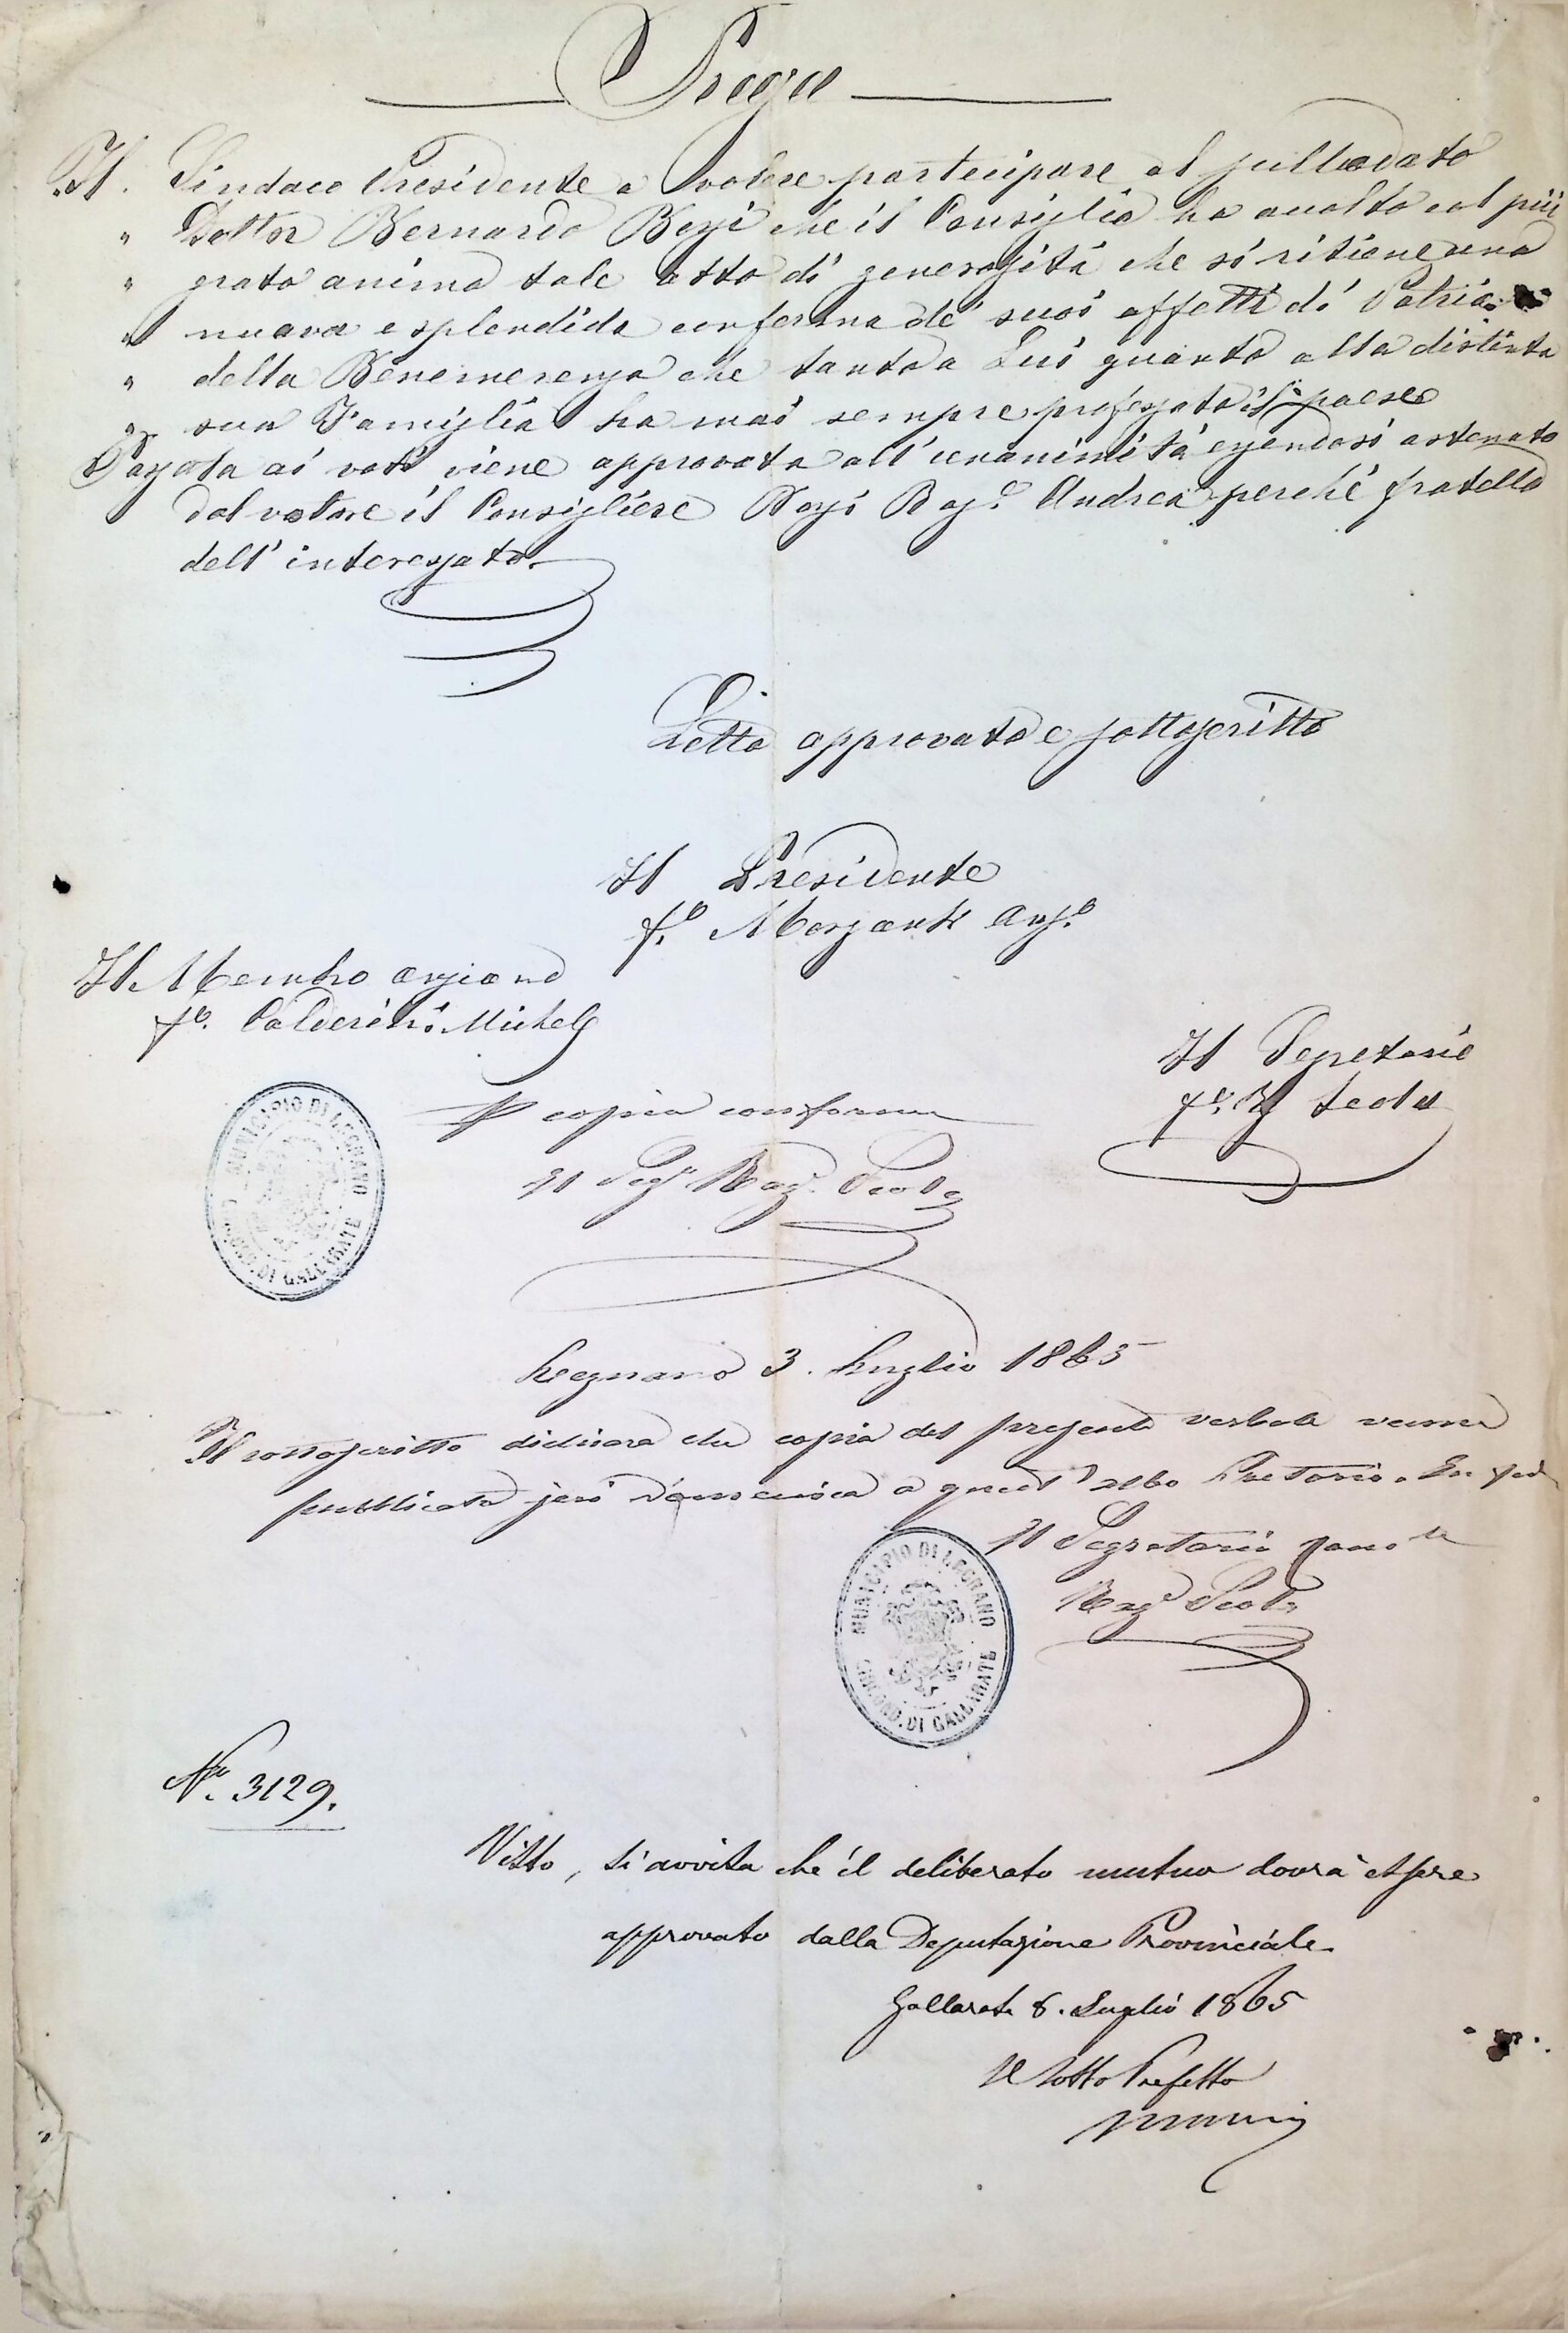 Prega
Il Sindaco Presidente a volere partecipare al sullodato
" Dottor Bernardo che il Consiglio ha accolto col più
" grato animo tale atto di generosità che si ritiene una
" nuova e splendida conferma de' suoi affetti di Patria e
" della Benemerenza che tanto a Lui quanto alla distinta
" sua Famiglia ha mai sempre professato il paese
Passata ai voti viene approvata all'unanimità essendosi astenuto
dal votare il Consigliere Rag.e Andrea perché fratello
dell'interessato.
Letto approvato e sottoscritto
Il Presidente
f.o
Il Membro anziano
f.o Calderini Michele
Il Segretario
f.o R Scola
P copia conforme
Il Seg.o Rag. Scola
MUNICIPIO DI LEGNANO
CIRCOND. DI GALLARATE
Legnano 3. Luglio 1865
Il sottoscritto dichiara che copia del presente verbale venne
pubblicata jeri Domenica a quest'albo Pretorio. In fede
Il Segretario
Rag.e Scola
MUNICIPIO DI LEGNANO
CIRCOND. DI GALLARATE
N.o 3129.
Visto, si avvisa che il deliberato mutuo dovrà essere
approvato dalla Deputazione Provinciale.
Gallarate 8. Luglio 1865
Il Sotto Prefetto